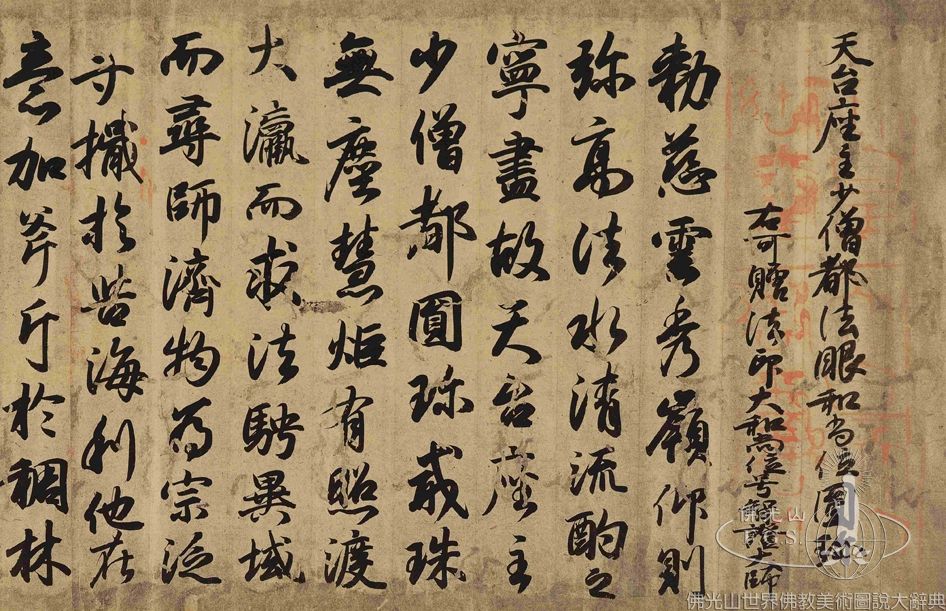 天台座主少僧都法眼和尚位圓珎
右可贈法印大和尚位号智證大師
勅慈雲秀嶺仰則
弥高法水清流酌之
寧盡故天台座主
少僧都圓珎戒珠
無塵慧炬有照渡
大瀛而求法騁異域
而尋師濟物為宗泛
舟檝於苦海利他在
意加斧斤於稠林
佛光山
F.G.S.
佛光山世界佛教美術圖說大辭典